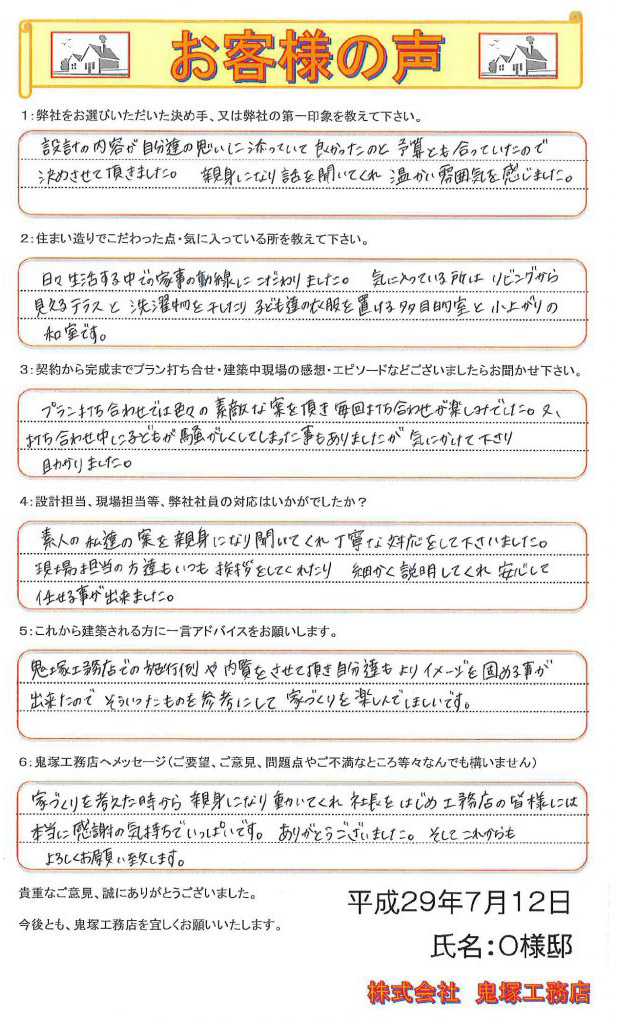 お客様の声
1:弊社をお選びいただいた決め手、又は弊社の第一印象を教えて下さい。
設計の内容が自分達の思いに添っていて良かったのと予算とも合っていたので
決めさせて頂きました。 親身になり話を聞いてくれ温かい雰囲気を感じました。
2:住まい造りでこだわった点・気に入っている所を教えて下さい。
日々生活する中での家事の動線にこだわりました。 気に入っている所はリビングから
見えるテラスと洗濯物を干したり子ども達の衣服を置ける多目的室と小上がりの
和室です。
3:契約から完成までプラン打ち合せ・建築中現場の感想・エピソードなどございましたらお聞かせ下さい。
プラン打ち合わせでは色々の素敵な案を頂き毎回打ち合わせが楽しみでした。又、
打ち合わせ中に子どもが騒がしくしてしまった事もありましたが気にかけて下さり
助かりました。
4:設計担当、現場担当等、弊社社員の対応はいかがでしたか?
素人の私達の案を親身になり聞いてくれ丁寧な対応をして下さいました。
現場担当の方達もいつも挨拶をしてくれたり 細かく説明してくれ安心して
任せる事が出来ました。
5:これから建築される方に一言アドバイスをお願いします。
鬼塚工務店での施行例や内覧をさせて頂き自分達もよりイメージを固める事が
出来たのでそういったものを参考にして家づくりを楽しんでほしいです。
6:鬼塚工務店へメッセージ(ご要望、ご意見、問題点やご不満なところ等々なんでも構いません)
家づくりを考えた時から親身になり動いてくれ社長をはじめ工務店の皆様には
本当に感謝の気持ちでいっぱいです。ありがとうございました。そしてこれからも
よろしくお願い致します。
貴重なご意見、誠にありがとうございました。
今後とも、鬼塚工務店を宜しくお願いいたします。
平成29年7月12日
氏名:O様邸
株式会社 鬼塚工務店